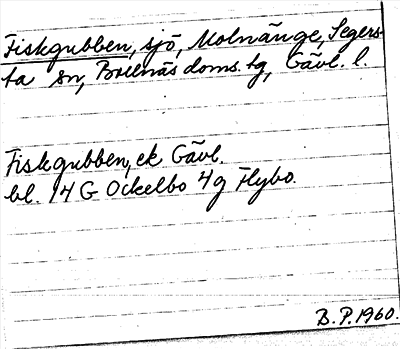 Fiskgubben, sjö, Molnänge, Segers-
ta sn, Bollnäs doms. tg, Gävl. l.
Fiskgubben, ek Gävl.
bl. 14 G Ockelbo 4g Flybo.
B.P. 1960.